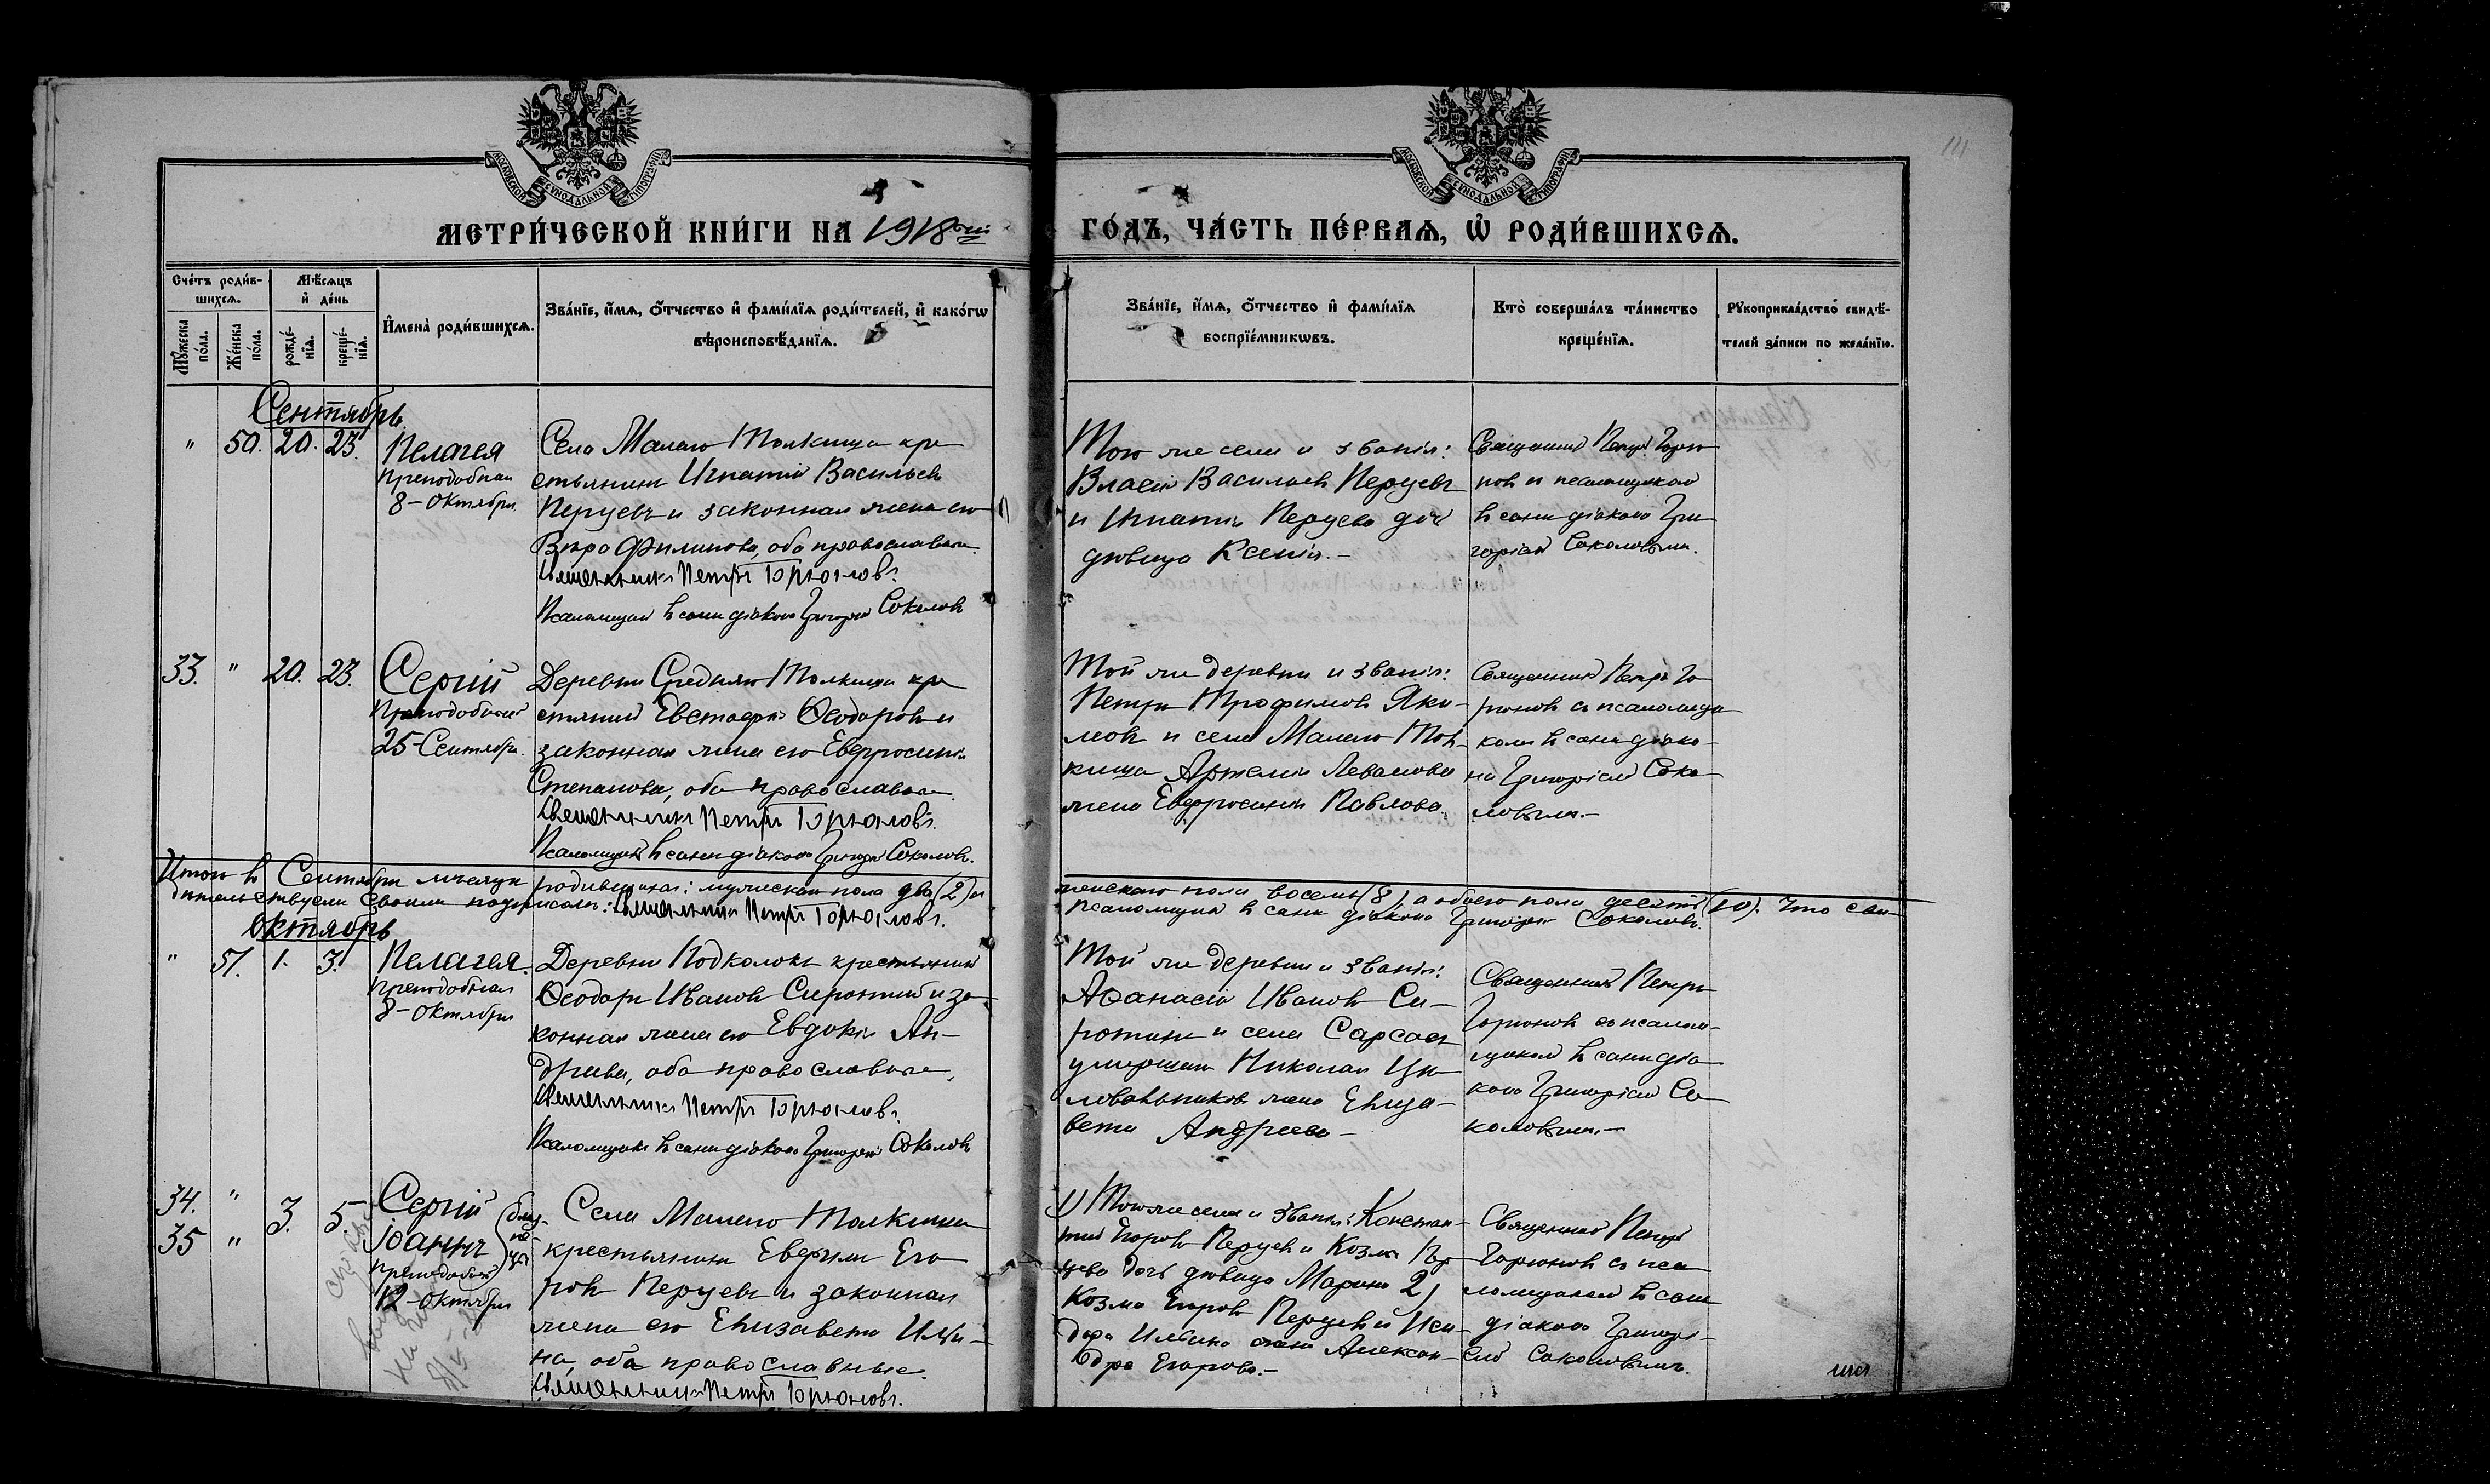 111
МОСКОВСКОЙ СѴНОДАЛЬНОЙ ТИПОГРАФІИ
МОСКОВСКОЙ СѴНОДАЛЬНОЙ ТИПОГРАФІИ
МЕТРИ́ЧЕСКОЙ КНИ́ГИ НА 1918ый
ГО́ДЪ, ЧА́СТЬ ПЕ́РВАѦ, Ѡ҆ РОДИ́ВШИХСѦ.
Сче́тъ роди́в-
шихсѧ.
Мѣ́сѧцъ
и҆ де́нь
Мꙋ́жеска по́ла.
Же́нска по́ла.
рожде́-
нїѧ.
креще́-
нїѧ.
И҆мена̀ роди́вшихсѧ.
Зва́нїе, и҆́мѧ, ѻ҆́тчество и҆ фами́лїѧ роди́телей, и҆ како́гѡ
вѣроисповѣ́данїѧ.
Зва́нїе, и҆́мѧ, ѻ҆́тчество и҆ фами́лїѧ
воспрїе́мникѡвъ.
Кто̀ соверша́лъ та́инство
креще́нїѧ.
Рꙋкоприкла́дство свидѣ́-
телей за́писи по жела́нїю.
Сентябрь
" 50. 20. 23.
Пелагея
Преподобная
8-Октября.
Села Малаго Толкиша кре
стьянинъ Игнатій Васильевъ
Перцевъ и законная жена его
Вѣра Филипова, оба православные.
Священникъ Петръ Горюновъ.
Псаломщикъ въ санѣ діакона Григорій Соколовъ
Того же села и званія:
Власій Васильевъ Перцевъ
и Игнатія Перцева дочь
дѣвица Ксенія.-
Священникъ Петръ Горю
новъ съ псаломщикомъ
въ санѣ діакона Гри
горіемъ Соколовымъ.
33. " 20. 23.
Сергій
Преподобный
25-Сентября.
Деревни Средняго Толкиша кре
стьянинъ Евстафій Ѳеодоровъ и
законная жена его Евфросинія
Степанова, оба православные.
Священникъ Петръ Горюновъ.
Псаломщикъ въ санѣ діакона Григорій Соколовъ.
Той же деревни и званія:
Петръ Трофимовъ Яки-
мовъ и села Малаго Тол-
киша Артемія
жена Евфросинія Павлова.
Священникъ Петръ Го
рюновъ съ псаломщи
комъ въ санѣ діако-
на Григоріемъ Соко
ловымъ.-
Итого въ Сентябрѣ мѣсяцѣ родившихся: мужескаго пола два (2) и женскаго пола восемь (8), а обоего пола десять (10). Что сви-
дѣтельствуемъ своимъ подписомъ: Священникъ Петръ Горюновъ. Псаломщикъ въ санѣ діакона Григорій Соколовъ.
Октябрь
" 51. 1. 3.
Пелагея.
Преподобная
8-Октября
Деревни Подволокъ крестьянинъ
Ѳеодоръ Ивановъ Сиротинъ и за-
конная жена его Евдокія Ан-
дреева, оба православные.
Священникъ Петръ Горюновъ.
Псаломщикъ въ санѣ діакона Григорій Соколовъ
Той же деревни и званія:
Аѳанасій Ивановъ Си-
ротинъ и села Сарсазъ
умершаго Николая Цѣ
ловальникова жена Елиза-
вета Андреева-
Священникъ Петръ
Горюновъ съ псалом-
щикомъ въ санѣ діа
кона Григоріемъ Со
коловымъ.-
34. " 3. 5.
35 "
Сергій
Іоаннъ
Преподобный
12-Октября
близ-
не-
цы
Села Малаго Толкиша
крестьянинъ Евфимъ Его
ровъ Перцевъ и законная
жена его Елизавета Ильи-
на, оба православные.
Священникъ Петръ Горюновъ.
1) Того же села и званія: Констан-
тинъ Егоровъ Перцевъ и Козмы Пер
цева дочь дѣвица Марина 2)
Козма Егоровъ Перцевъ и Иси-
дора Ильина жена Алексан-
дра Егорова.-
Священникъ Петръ
Горюновъ съ пса
ломщикомъ въ санѣ
діакона Григорі-
емъ Соколовымъ.